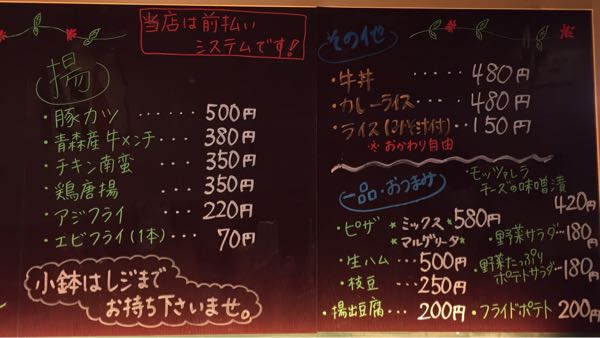 当店は前払い
システムです!
揚
・豚カツ ・・・・・ 500円
・青森産牛メンチ ・・・・ 380円
・チキン南蛮 ・・・・ 350円
・鶏唐揚 ・・・・・ 350円
・アジフライ ・・・・ 220円
・エビフライ(1本) ・・ 70円
小鉢はレジまで
お持ち下さいませ。
その他
・牛丼 ・・・・・・ 480円
・カレーライス ・・・・ 480円
・ライス(みそ汁付) ・・ 150円
※おかわり自由
一品・おつまみ
・ピザ *ミックス* 580円
*マルゲリータ*
・生ハム 500円
・枝豆 ・・・・ 250円
・揚出豆腐 ・・・ 200円
・モッツァレラ
チーズの味噌漬
420円
・野菜サラダ・・・180円
・野菜たっぷり
ポテトサラダ・・・180円
・フライドポテト 200円